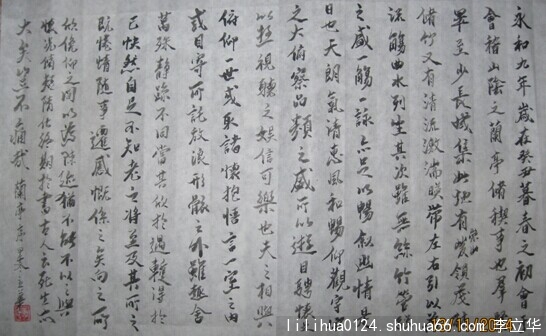 永和九年歲在癸丑暮春之初會
會稽山陰之蘭亭脩禊事也羣賢
畢至少長咸集此地有崇山峻領茂
脩竹又有清流激湍暎帶左右引以
流觴曲水列坐其次雖無絲竹管
之盛一觴一詠亦足以暢敘幽情是
日也天朗氣清惠風和暢仰觀宇宙
之大俯察品類之盛所以遊目騁懷
以極視聽之娛信可樂也夫之相與
俯仰一世或取諸懷抱悟言一室之內
或因寄所託放浪形骸之外雖趣舍
萬殊靜躁不同當其欣於遇輒得於
己快然自足不知老之將至及其所之
既惓情隨事遷感慨係之矣向之所
欣俛仰之間以為陳迹猶不能不以之興
懷況脩短隨化終期於盡古人云死生亦
大矣豈不痛哉 蘭亭序
lilihua0124.shuhua66.com 李立华